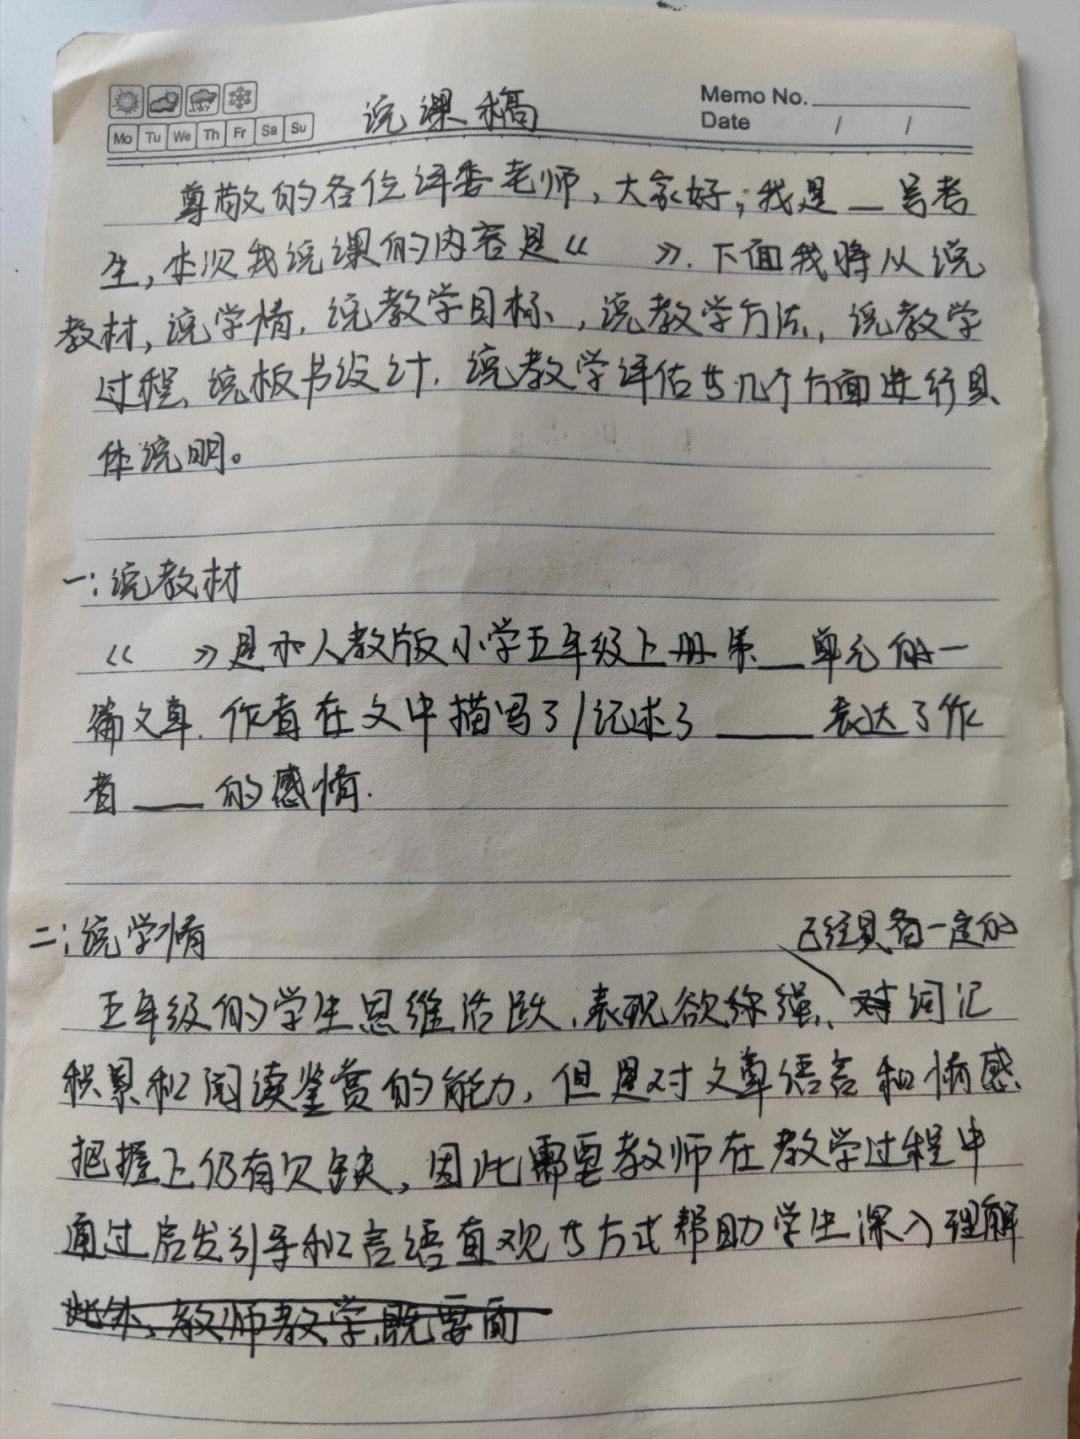 Mo Tu We Th Fr Sa Su
说课稿
Memo No.
Date / /
尊敬的各位评委老师,大家好;我是__号考
生,本次我说课的内容是《 》.下面我将从说
教材,说学情,说教学目标,说教学方法,说教学
过程,说板书设计,说教学评估等几个方面进行具
体说明。
一:说教材
《 》是部人教版小学五年级上册第__单元的一
篇文章.作者在文中描写了/记述了____表达了作
者___的感情.
二:说学情
已经具备一定的
五年级的学生思维活跃,表现欲较强,对词汇
积累和阅读鉴赏的能力,但是对文章语言和情感
把握上仍有欠缺,因此需要教师在教学过程中
通过启发引导和言语直观等方式帮助学生深入理解
此外,教师教学,既要面